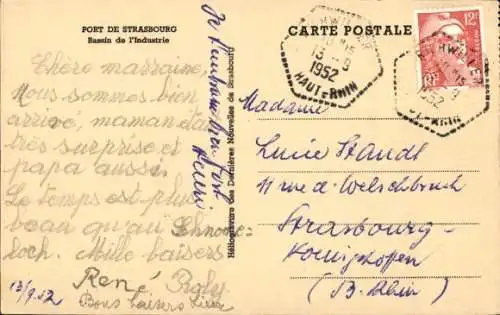 PORT DE STRASBOURG
Bassin de l'Industrie
Chère marraine,
Nous sommes bien
arrivé, maman était
très surprise et
papa aussi.
Le temps est plus
beau qu'au Schnoke
loch. Mille baisers
René,
13/9.52 Bons baisers
Je t'embrasse bien fort
Henri
Héliogravure des Dernières Nouvelles de Strasbourg
CARTE POSTALE
12F
RF
15
13 - 9
1952
HAUT-RHIN
Madame
Lucie Staudt
11 rue de Welschbruch
Strasbourg-
Koenigshoffen
(B. Rhin)